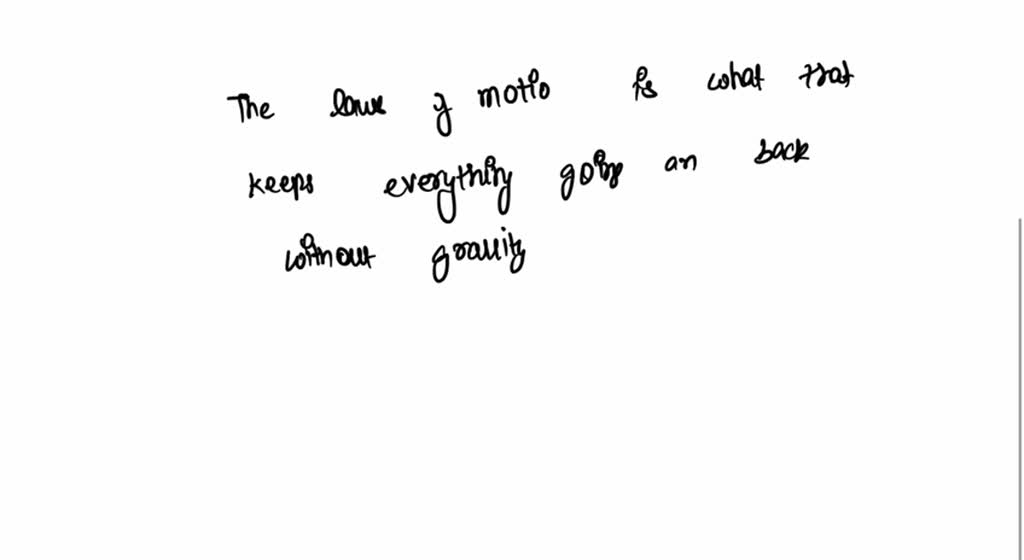 The laws of motio is what that
keeps everything going an back
without gravity